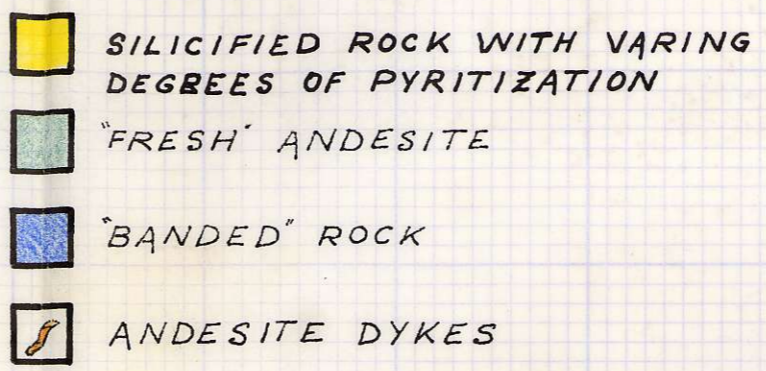 SILICIFIED ROCK WITH VARING
DEGREES OF PYRITIZATION
"FRESH" ANDESITE
"BANDED" ROCK
ANDESITE DYKES